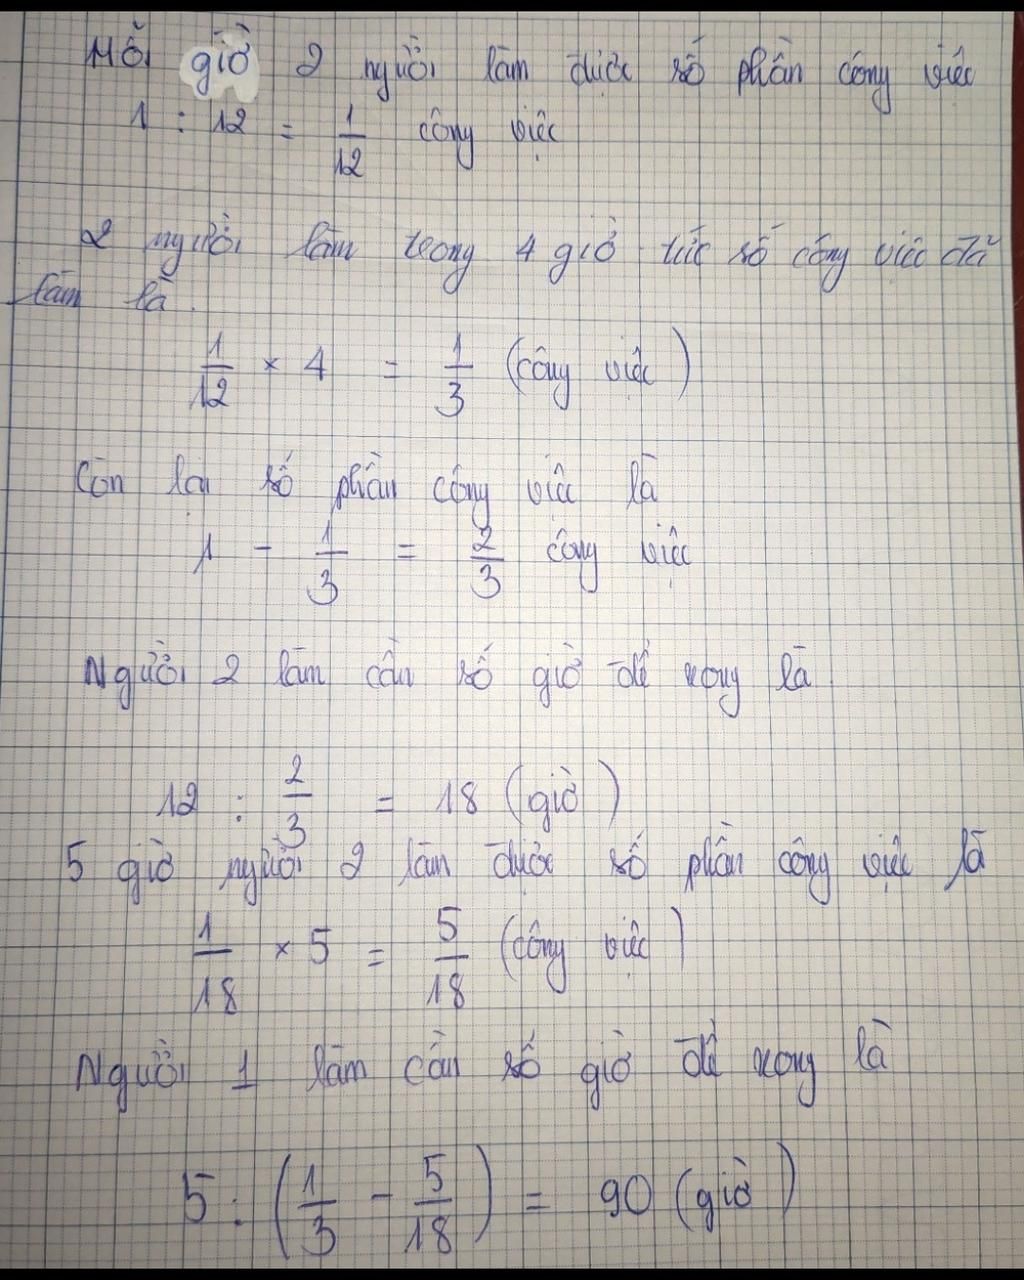 Mỗi giờ 2 người làm được số phần công việc
1 : 12 = 1/12 công việc
2 người làm trong 4 giờ tức số công việc đã
làm là.
1/12 × 4 = 1/3 (công việc)
Còn lại số phần công việc là
1 - 1/3 = 2/3 công việc
Người 2 làm cần số giờ để xong là
12 : 2/3 = 18 (giờ)
5 giờ người 2 làm được số phần công việc là
1/18 × 5 = 5/18 (công việc)
Người 1 làm cần số giờ để xong là
5 : (1/3 - 5/18) = 90 (giờ)